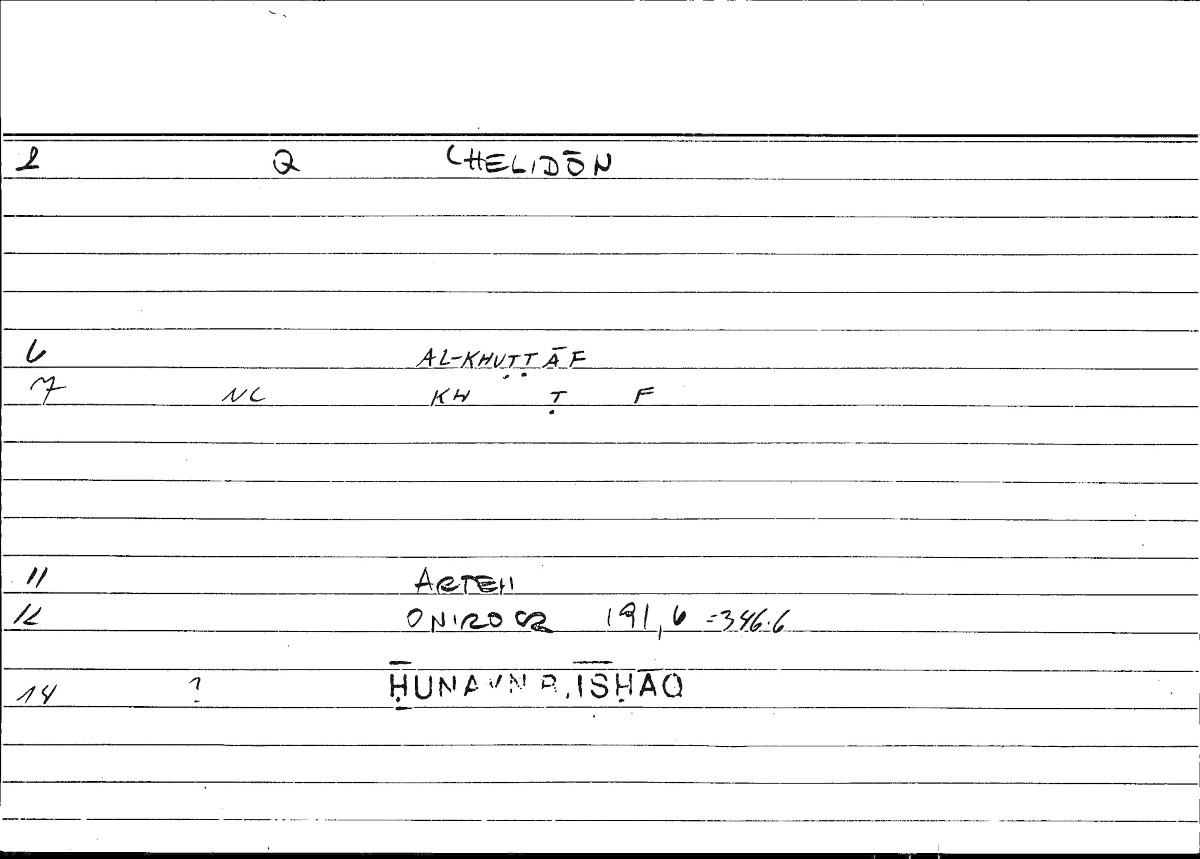 1 Q CHELIDŌN
6 AL-KHUṬṬĀF
7 NC KH Ṭ F
11 ARTEM
12 ONIROCR 191,6 =346.6
14 ? ḤUNAYN B. ISḤĀQ